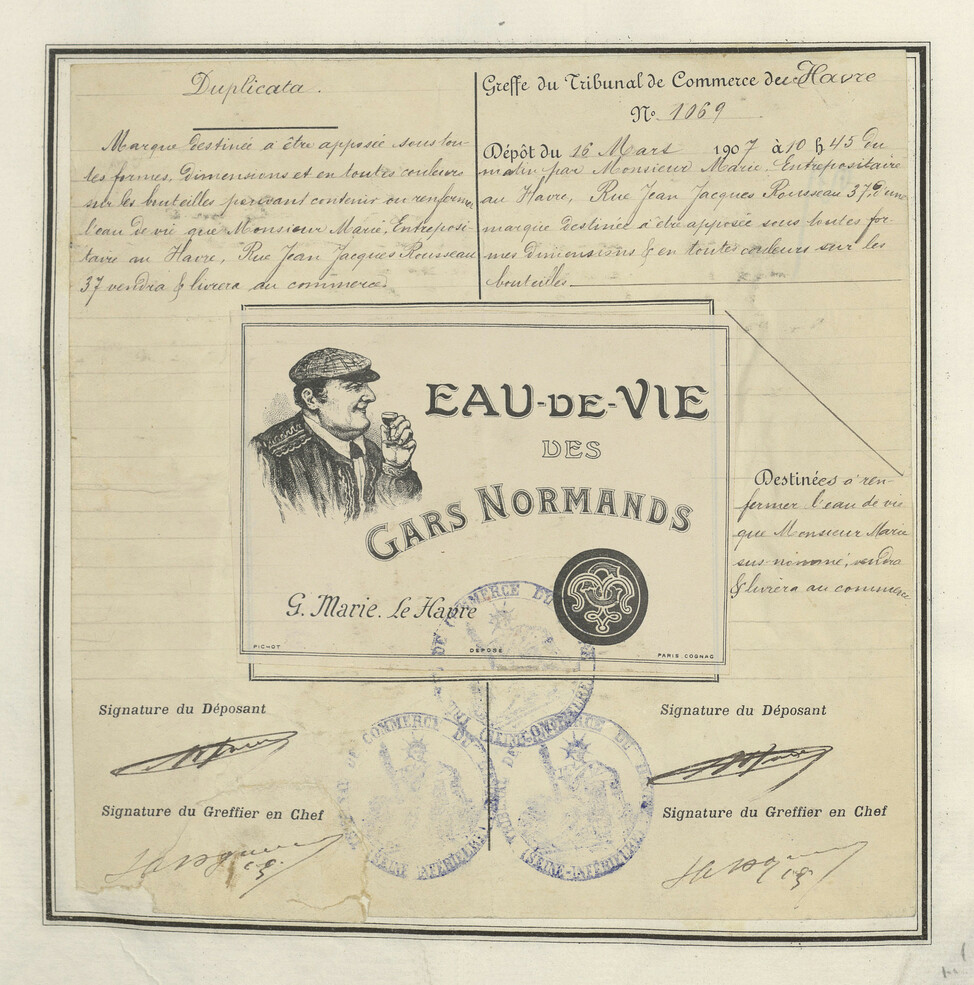 Duplicata.
Marque destinée à être apposée sous tou-
tes formes, dimensions et en toutes couleurs
sur les bouteilles pouvant contenir ou renfermer
l'eau de vie que Monsieur Marie, Entreposi-
taire au Havre, Rue Jean Jacques Rousseau
37 vendra & livrera au commerce
Greffe du Tribunal de Commerce du Havre
No 1069
Dépôt du 16 Mars 1907 à 10 h 45 du
matin par Monsieur Marie, Entrepositaire
au Havre, Rue Jean Jacques Rousseau 37 d'une
marque destinée à être apposée sous toutes for-
mes dimensions & en toutes couleurs sur les
bouteilles
Destinées à ren-
fermer l'eau de vie
que Monsieur Marie
sus nommé, vendra
& livrera au commerce
EAU-DE-VIE
DES
GARS NORMANDS
G. Marie. Le Havre
PICHOT
DÉPOSÉ
PARIS. COGNAC
Signature du Déposant
Signature du Déposant
Signature du Greffier en Chef
Signature du Greffier en Chef
DE COMMERCE DU
(SEINE-INFÉRIEURE)
COMMERCE DU
(SEINE-INFÉRIEURE)